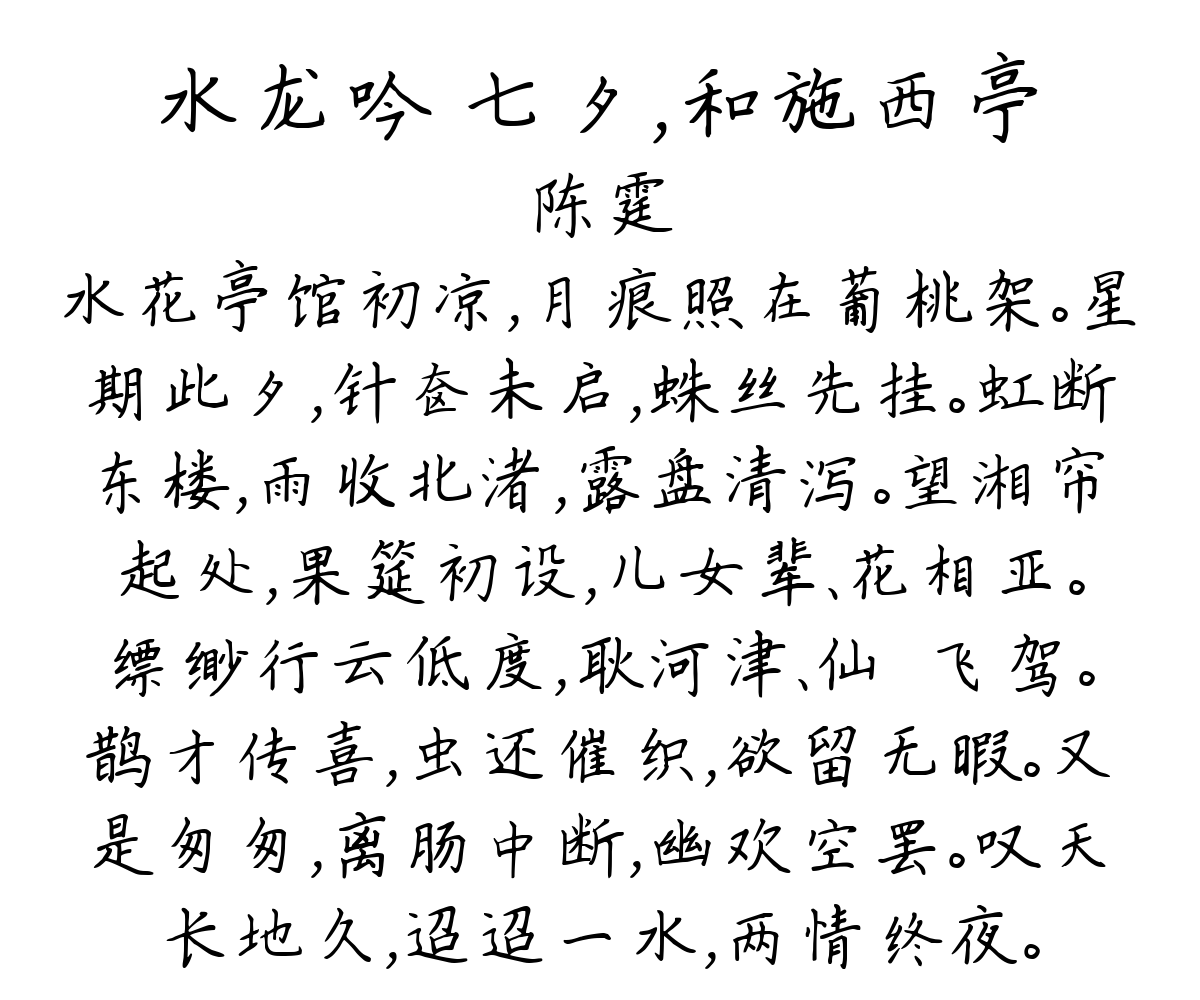 水龙吟 七夕,和施西亭
陈霆
水花亭馆初凉,月痕照在葡桃架。星
期此夕,针奁未启,蛛丝先挂。虹断
东楼,雨收北渚,露盘清泻。望湘帘
起处,果筵初设,儿女辈、花相亚。
缥缈行云低度,耿河津、仙 飞驾。
鹊才传喜,虫还催织,欲留无暇。又
是匆匆,离肠中断,幽欢空罢。叹天
长地久,迢迢一水,两情终夜。